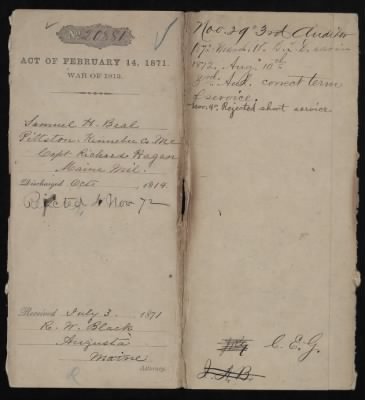 No. 20881
ACT OF FEBRUARY 14, 1871.
WAR OF 1812.
Samuel H. Beal
Pittston. Kennebec Co. Me
Capt. Richard Hagan
Maine Mil.
Discharged Octr 1814.
Rejected, 4 Nov 72
Received July 3. 1871
R. W. Black
Augusta
Maine
Attorney.
Nov. 29" 3rd Auditor
1872, Aug. 10th
3rd Aud. correct term
of service.
Nov. 4". Rejected short service
C. E. G.
J. A. B.